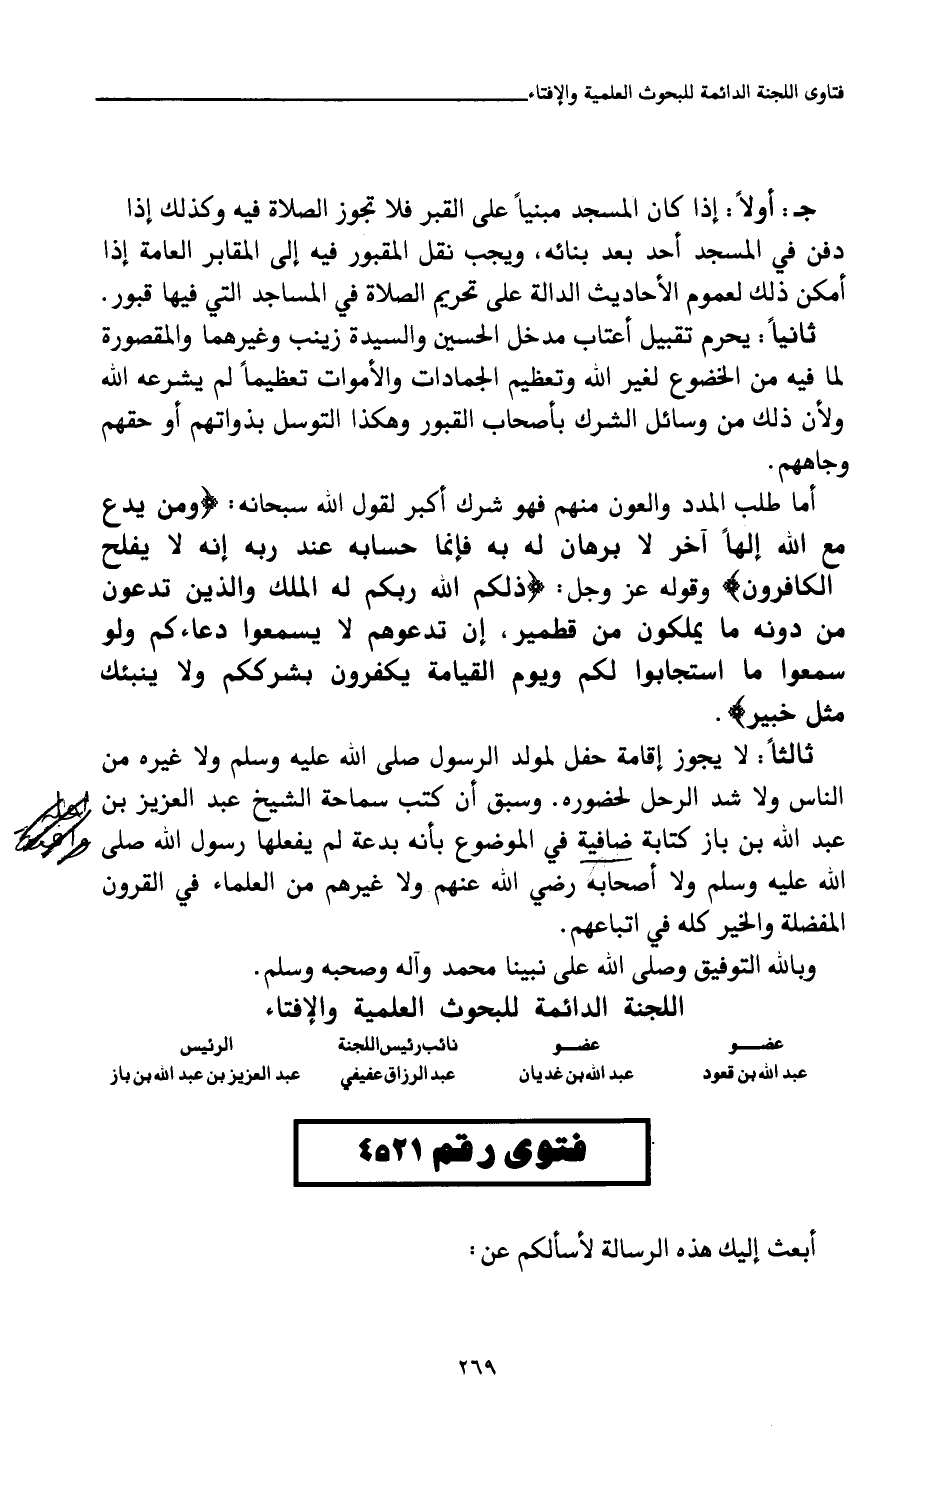 فتاوى اللجنة الدائمة للبحوث العلمية والإفتاء
جـ: أولاً: إذا كان المسجد مبنياً على القبر فلا تجوز الصلاة فيه وكذلك إذا
دفن في المسجد أحد بعد بنائه، ويجب نقل المقبور فيه إلى المقابر العامة إذا
أمكن ذلك لعموم الأحاديث الدالة على تحريم الصلاة في المساجد التي فيها قبور.
ثانياً: يحرم تقبيل أعتاب مدخل الحسين والسيدة زينب وغيرهما والمقصورة
لما فيه من الخضوع لغير الله وتعظيم الجمادات والأموات تعظيماً لم يشرعه الله
ولأن ذلك من وسائل الشرك بأصحاب القبور وهكذا التوسل بذواتهم أو حقهم
وجاههم.
أما طلب المدد والعون منهم فهو شرك أكبر لقول الله سبحانه: ﴿ومن يدع
مع الله إلهاً آخر لا برهان له به فإنما حسابه عند ربه إنه لا يفلح
الكافرون﴾ وقوله عز وجل: ﴿ذلكم الله ربكم له الملك والذين تدعون
من دونه ما يملكون من قطمير، إن تدعوهم لا يسمعوا دعاءكم ولو
سمعوا ما استجابوا لكم ويوم القيامة يكفرون بشرككم ولا ينبئك
مثل خبير﴾.
ثالثاً: لا يجوز إقامة حفل لمولد الرسول صلى الله عليه وسلم ولا غيره من
الناس ولا شد الرحل لحضوره. وسبق أن كتب سماحة الشيخ عبد العزيز بن
عبد الله بن باز كتابة ضافية في الموضوع بأنه بدعة لم يفعلها رسول الله صلى
الله عليه وسلم ولا أصحابه رضي الله عنهم ولا غيرهم من العلماء في القرون
المفضلة والخير كله في اتباعهم.
وبالله التوفيق وصلى الله على نبينا محمد وآله وصحبه وسلم.
اللجنة الدائمة للبحوث العلمية والإفتاء
عضــو عضــو نائب رئيس اللجنة الرئيس
عبد الله بن قعود عبد الله بن غديان عبد الرزاق عفيفي عبد العزيز بن عبد الله بن باز
فتوى رقم ٤٥٢١
أبعث إليك هذه الرسالة لأسألكم عن:
٢٦٩